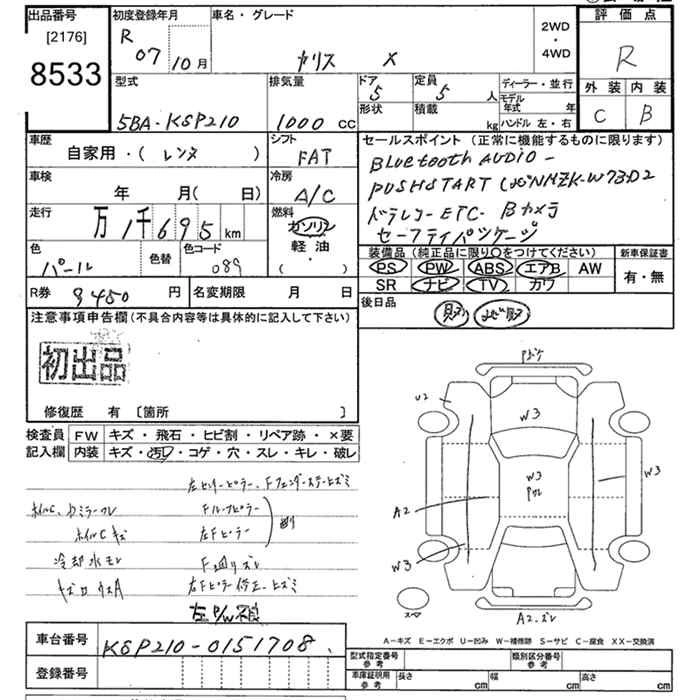 出品番号 初度登録年月 車名・グレード 2WD・4WD 評価点
[2176] R 07 10月 ヤリス X R
8533
外装 内装
C B
型式 排気量 ドア 定員 ディーラー・並行
5BA-KSP210 1000 cc 5 5 人 モデル年式 年
形状 積載 kg ハンドル 左・右
車歴 シフト セールスポイント (正常に機能するものに限ります)
自家用・( レンタ ) FAT Bluetooth AUDIO-
車検 冷房 PUSHSTART
年 月( 日) A/C
走行 燃料 ドラレコ-ETC- Bカメラ
万 1千 695 km ガソリン セーフティパッケージ
色 色替 色コード 軽油・
パール 089 ( )
装備品 (純正品に限り○をつけてください) 新車保証書
PS PW ABS エアB AW 有・無
SR ナビ TV カワ
R券 9450 円 名変期限 月 日 後日品
注意事項申告欄 (不具合内容等は具体的に記入して下さい)
初出品
修復歴 有 [箇所 ]
検査員 FW キズ・飛石・ヒビ割・リペア跡・×要
記入欄 内装 キズ・汚れ・コゲ・穴・スレ・キレ・破レ
U2
W3
W3
W3
A2
W3
A2.ズレ
Fルーフピラー
ホイルC キズ 左Fピラー
冷却水モレ
左Fピラー修正・ヒズミ
左P/W不良
A-キズ E-エクボ U-凹み W-補修跡 S-サビ C-腐食 XX-交換済
車台番号 KSP210-0151708
型式指定番号 参考 類別区分番号 参考
登録番号 車庫証明用 参考 長さ cm 幅 cm 高さ cm